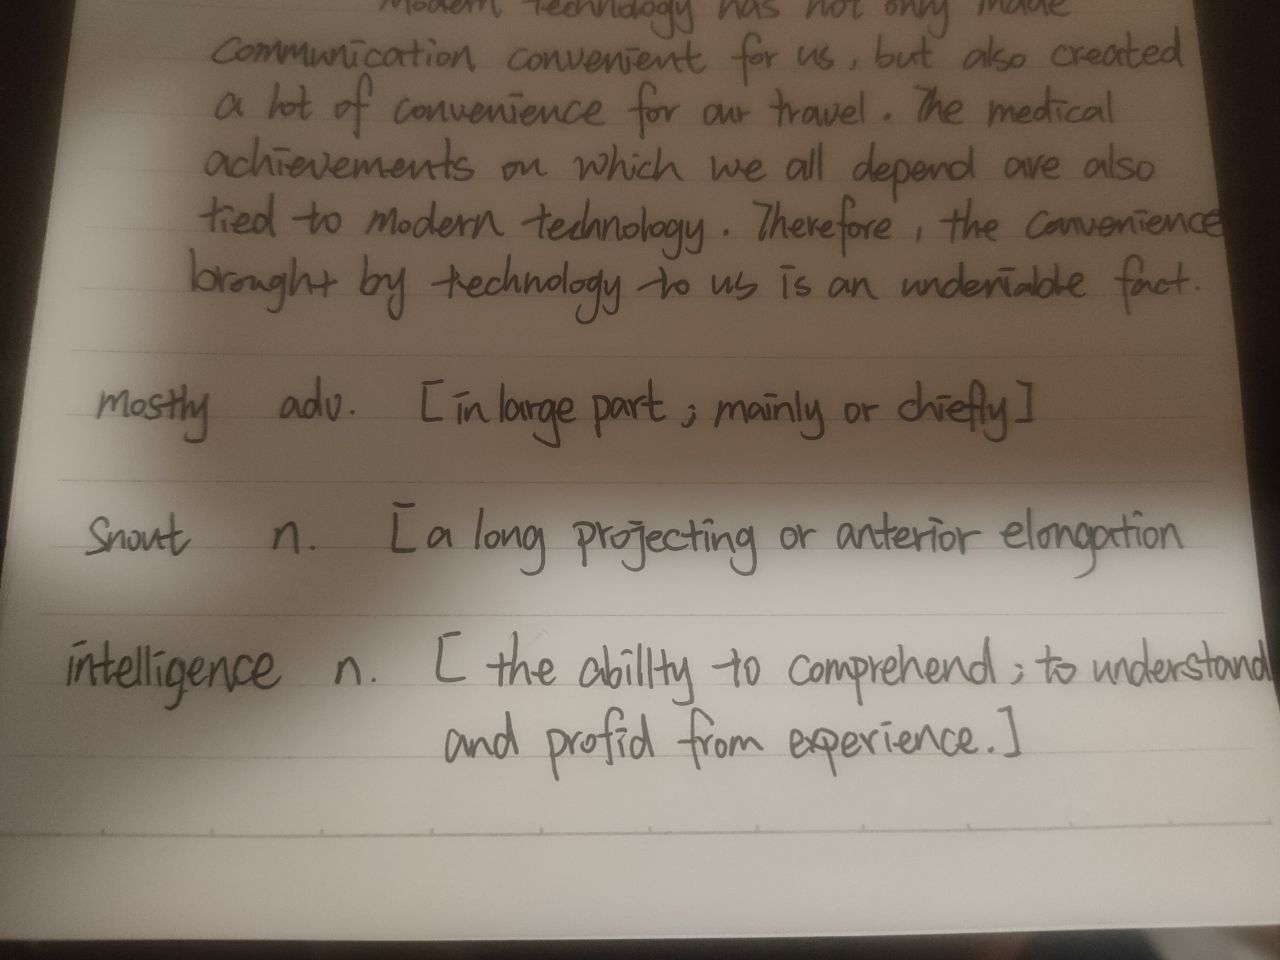 Modern technology has not only made
communication convenient for us, but also created
a lot of convenience for our travel. The medical
achievements on which we all depend are also
tied to modern technology. Therefore, the convenience
brought by technology to us is an undeniable fact.
mostly adv. [in large part; mainly or chiefly]
Snout n. [a long projecting or anterior elongation
intelligence n. [the abillty to comprehend; to understand
and profid from experience.]